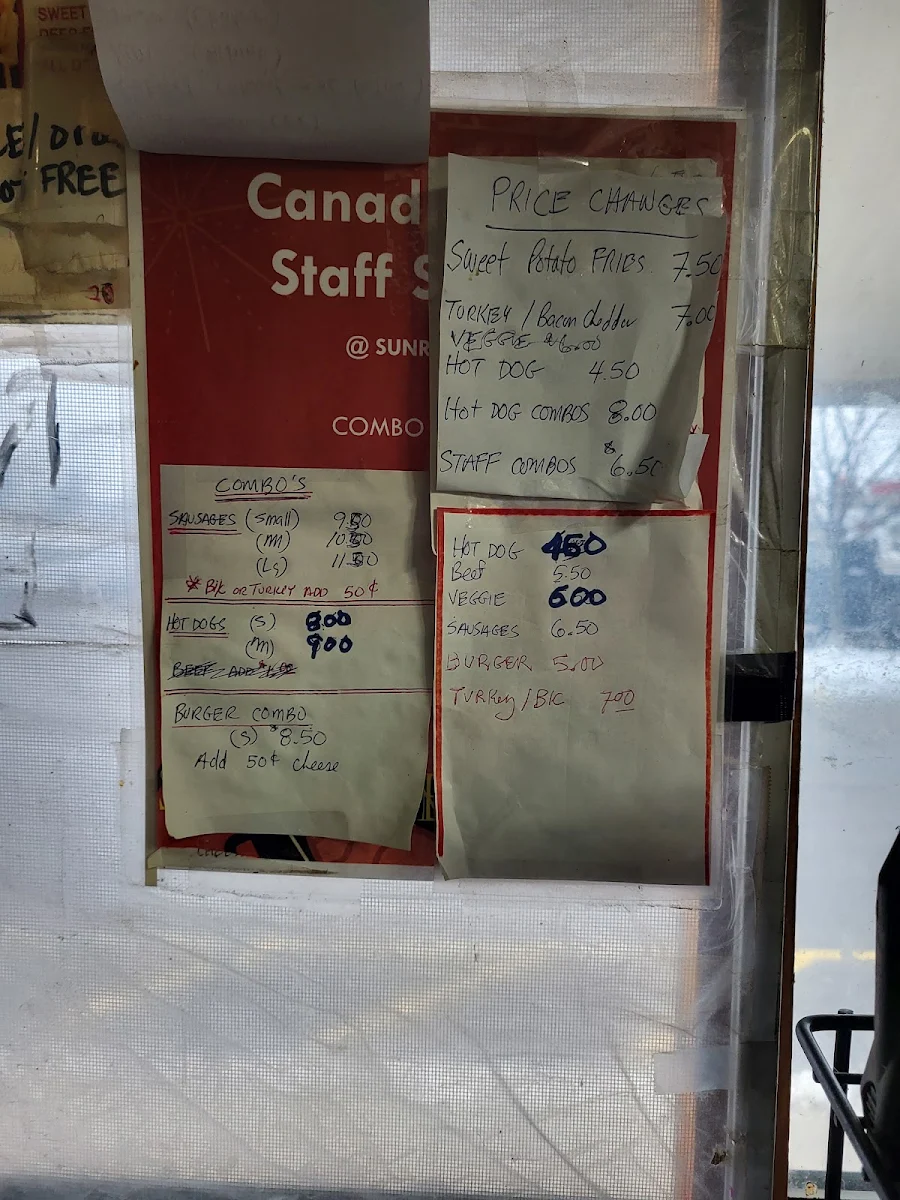 SWEET
FREE
20
Canad
Staff S
@ SUNR
COMBO
PRICE CHANGES
Sweet Potato FRIES 7.50
TURKEY / Bacon Cheddar 7.00
VEGGIE $6.00
HOT DOG 4.50
HOT DOG COMBOS 8.00
STAFF COMBOS $6.50
COMBO'S
SAUSAGES (small) 9.50
(m) 10.50
(Lg) 11.50
* B/C OR TURKEY ADD 50¢
HOT DOGS (S) 800
(m) 900
BEEF ADD $1.00
BURGER COMBO
(S) $8.50
Add 50¢ cheese
HOT DOG 450
Beef 5.50
VEGGIE 600
SAUSAGES 6.50
BURGER 5.00
TURKEY / B/C 700